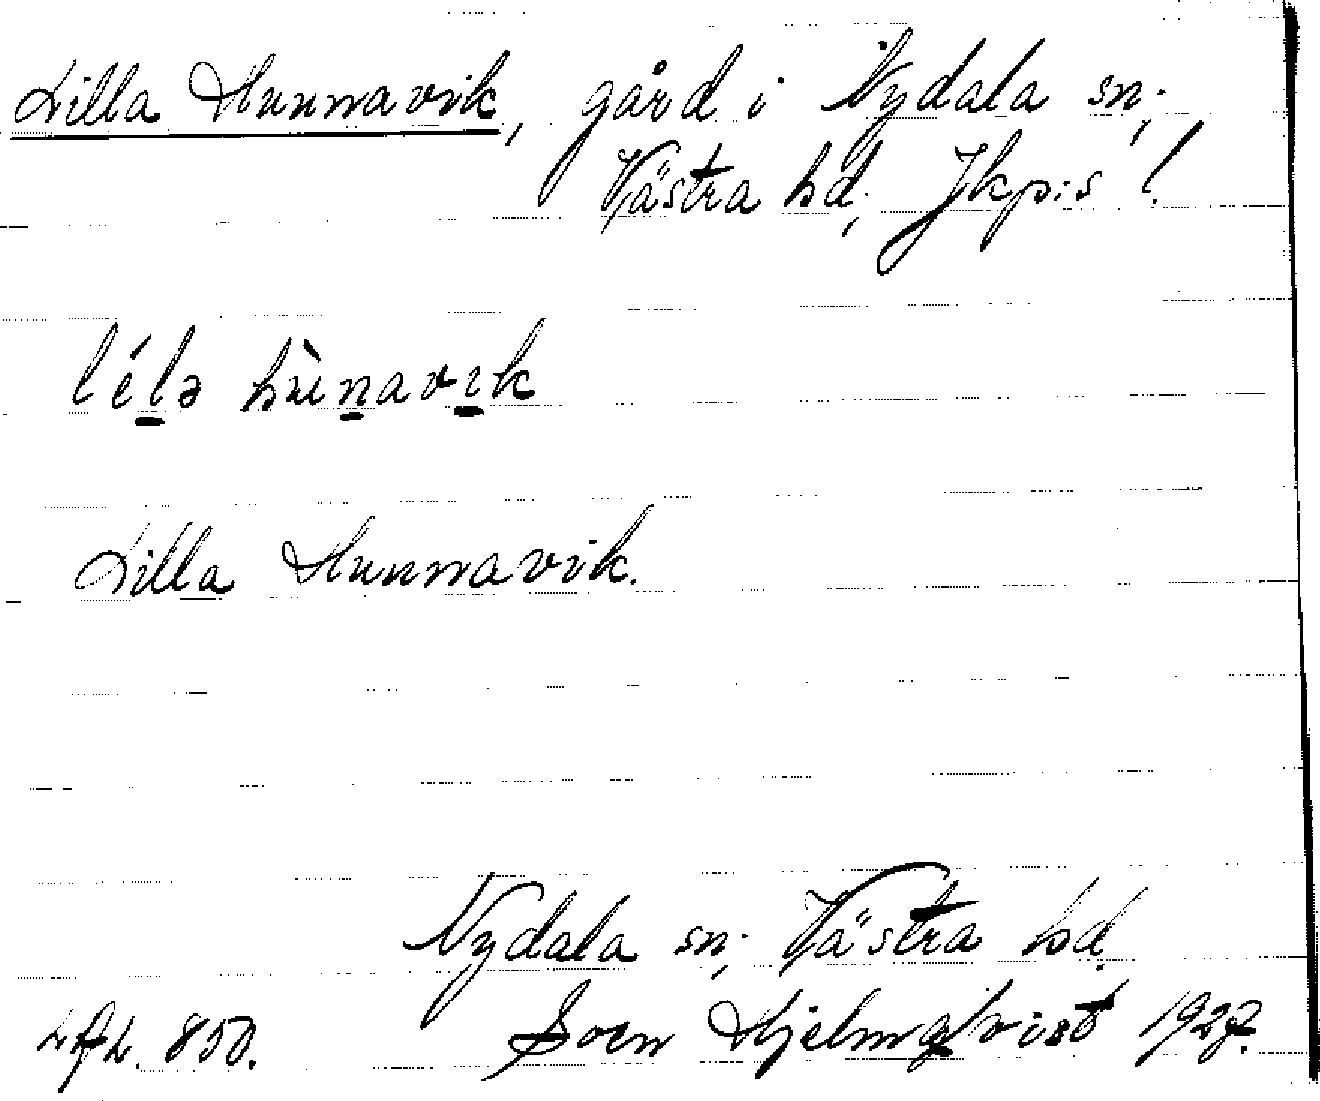 Lilla Hunnavik, gård i Nydala sn;
Västra hd; Jkps l.
lélə hùnavık
Lilla Hunnavik.
Nydala sn; Västra hd.
850. Sven Hjelmqvist 1927.